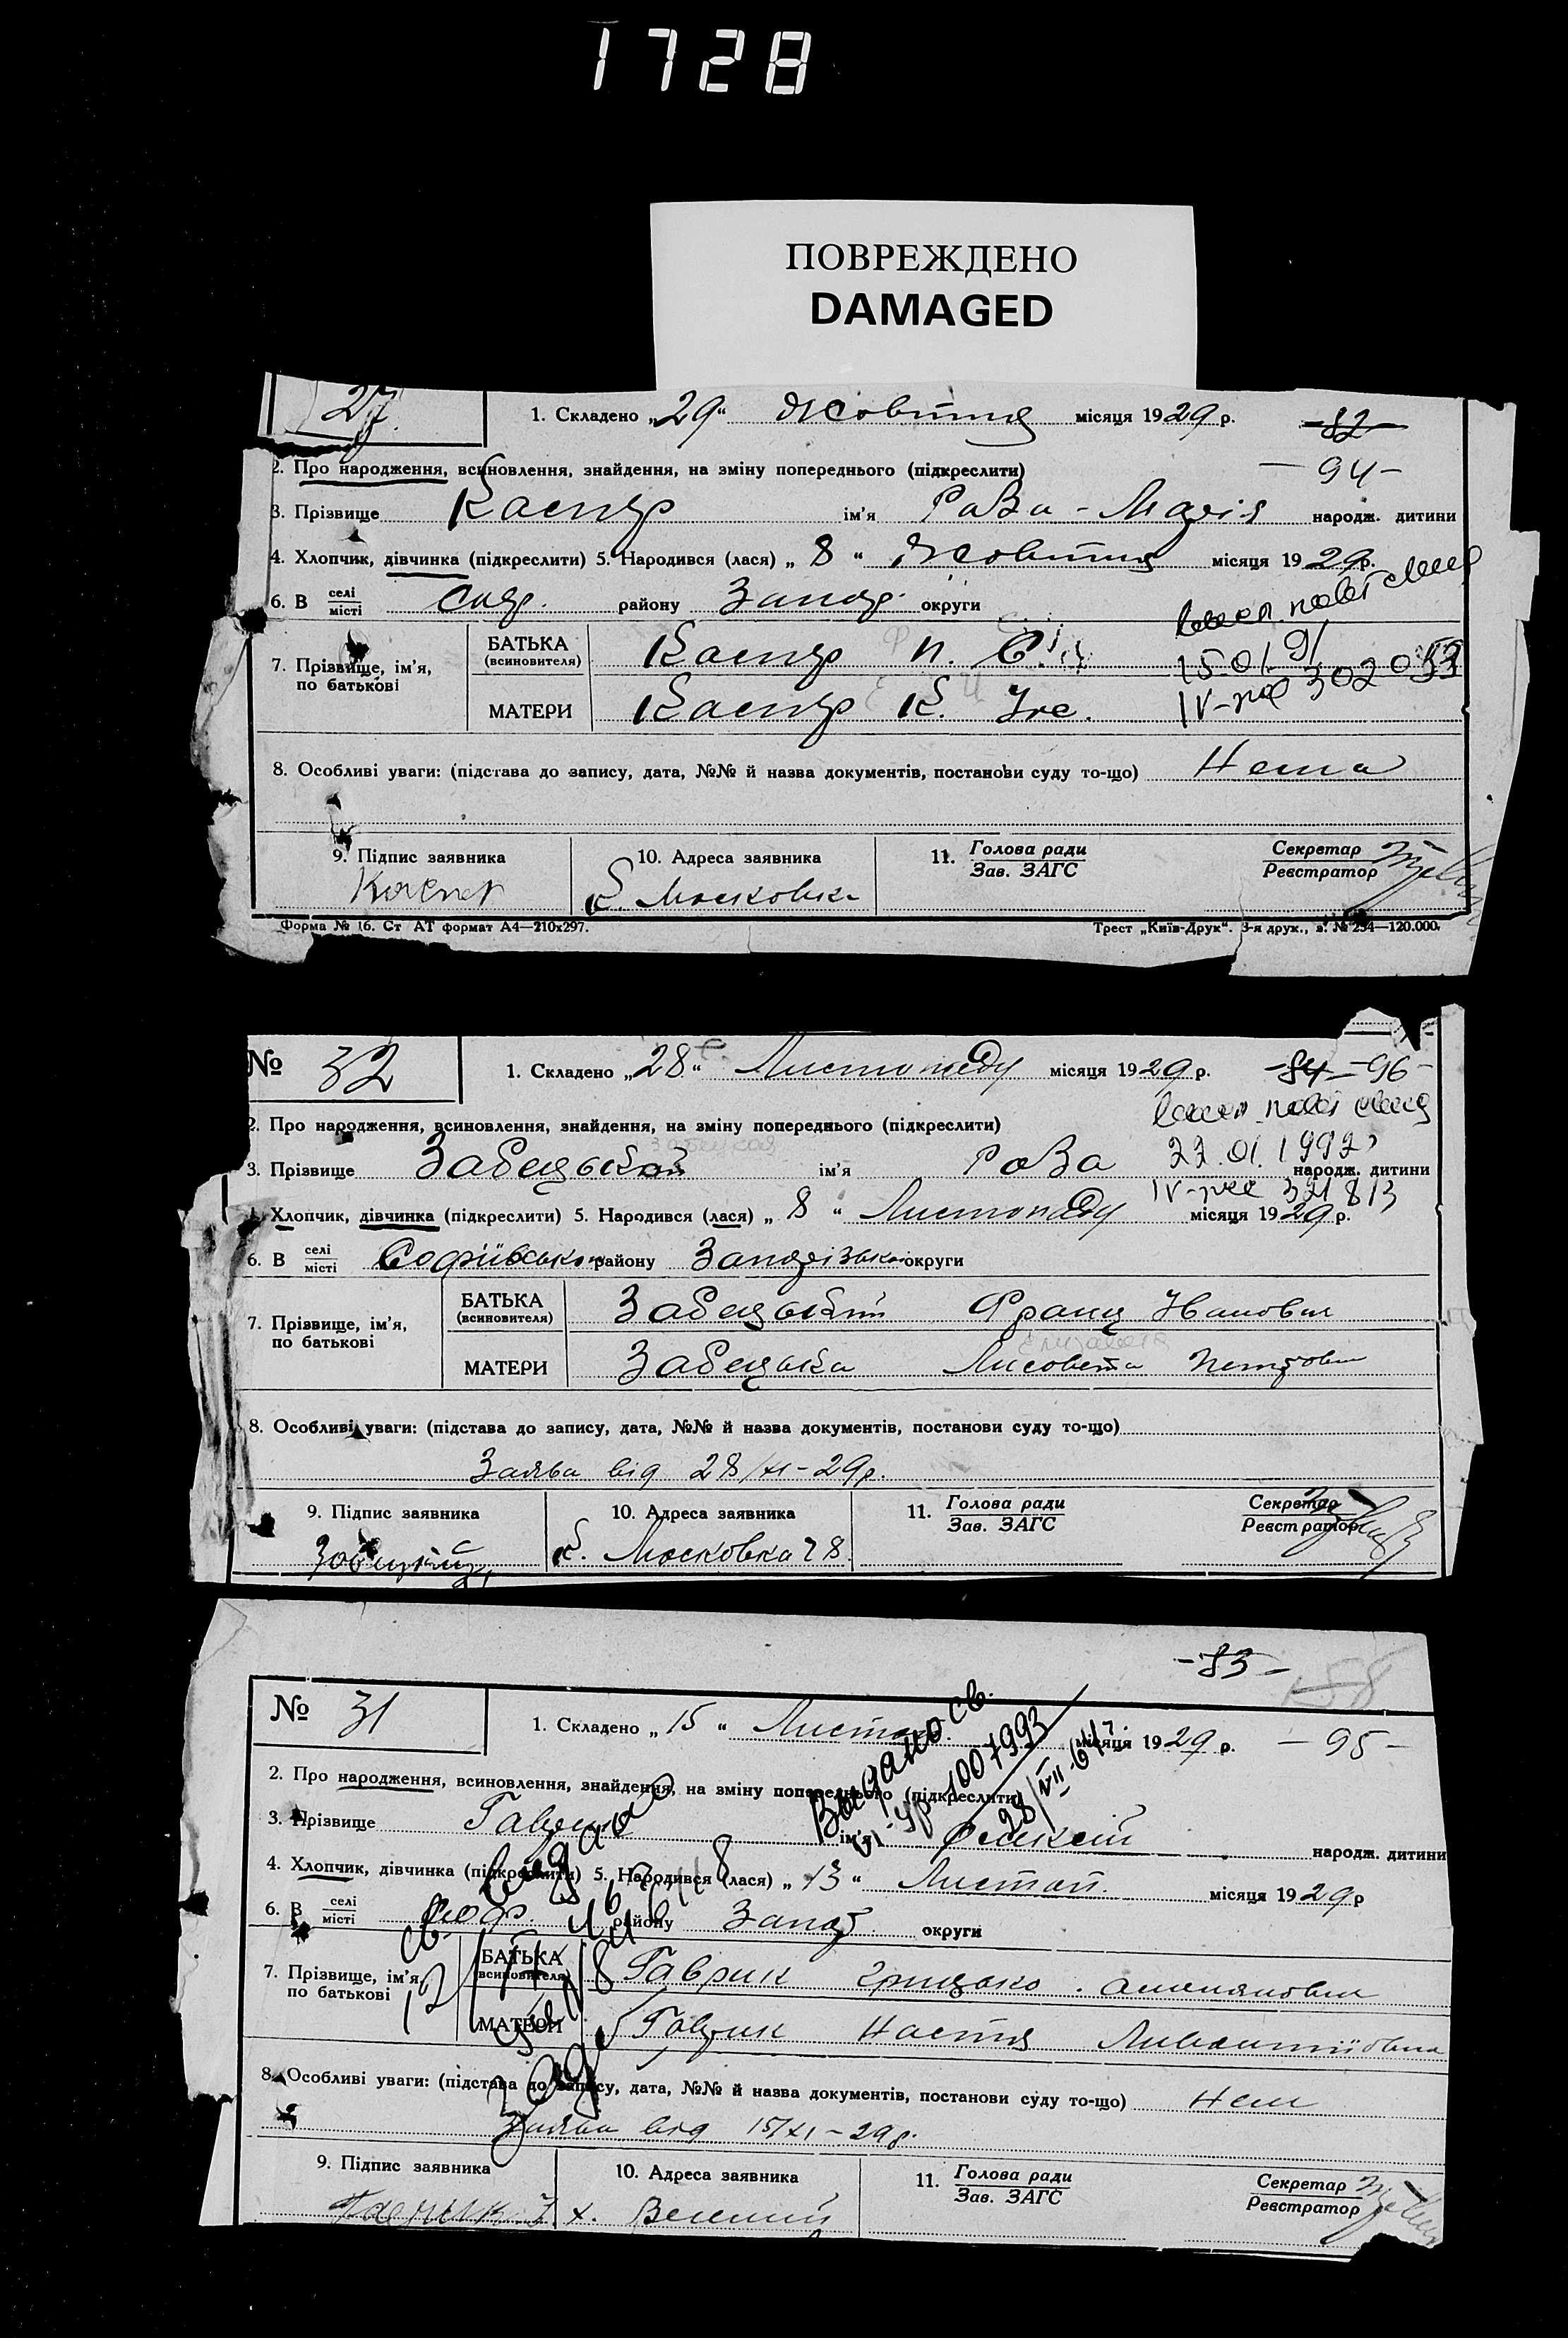 1728
ПОВРЕЖДЕНО
DAMAGED
27.
1. Складено „29“ Жовтня місяця 1929 р.
-82-
2. Про народження, всиновлення, знайдення, на зміну попереднього (підкреслити)
- 94 -
3. Прізвище Каспер ім'я Роза - Марія народж. дитини
4. Хлопчик, дівчинка (підкреслити) 5. Народився (лася) „ 8 “ Жовтня місяця 1929 р.
6. В селі/місті Соф. району Запор. округи
15.01.91
302053
7. Прізвище, ім'я, по батькові
БАТЬКА (всиновителя) Каспер П.
МАТЕРИ Каспер К.
8. Особливі уваги: (підстава до запису, дата, №№ й назва документів, постанови суду то-що) Нема
9. Підпис заявника
10. Адреса заявника
К. Московка
11. Голова ради / Зав. ЗАГС
Секретар / Реєстратор
Форма № 16. Ст АТ формат А4—210x297.
Трест „Київ-Друк“. 3-я друк., з. № 254—120.000.
№ 32
1. Складено „28“ Листопаду місяця 1929 р.
-84- -96-
2. Про народження, всиновлення, знайдення, на зміну попереднього (підкреслити)
3. Прізвище Забецький ім'я Роза народж. дитини
22.01.1992
321813
4. Хлопчик, дівчинка (підкреслити) 5. Народився (лася) „ 8 “ Листопаду місяця 1929 р.
6. В селі/місті Софіївсько району Запорізько округи
7. Прізвище, ім'я, по батькові
БАТЬКА (всиновителя) Забецький Франц Іванович
МАТЕРИ Забецька Лисовета Петровн
8. Особливі уваги: (підстава до запису, дата, №№ й назва документів, постанови суду то-що)
Заява від 28/XI-29р.
9. Підпис заявника
10. Адреса заявника
К. Московка 28
11. Голова ради / Зав. ЗАГС
Секретар / Реєстратор
-83-
№ 31
1. Складено „ 15 “ Листоп. місяця 1929 р.
- 95 -
Выдано св.
1007993
28/VII-61г.
2. Про народження, всиновлення, знайдення, на зміну попереднього (підкреслити)
3. Прізвище Гаврик ім'я народж. дитини
4. Хлопчик, дівчинка (підкреслити) 5. Народився (лася) „ 13 “ Листоп. місяця 1929 р
6. В селі/місті Соф. району Запор. округи
7. Прізвище, ім'я, по батькові
БАТЬКА (всиновителя) Гаврик Грицько
МАТЕРИ Гаврик Настя
8. Особливі уваги: (підстава до запису, дата, №№ й назва документів, постанови суду то-що) Нем
Заява від 15/XI-29р.
9. Підпис заявника
10. Адреса заявника
х. Веселий
11. Голова ради / Зав. ЗАГС
Секретар / Реєстратор